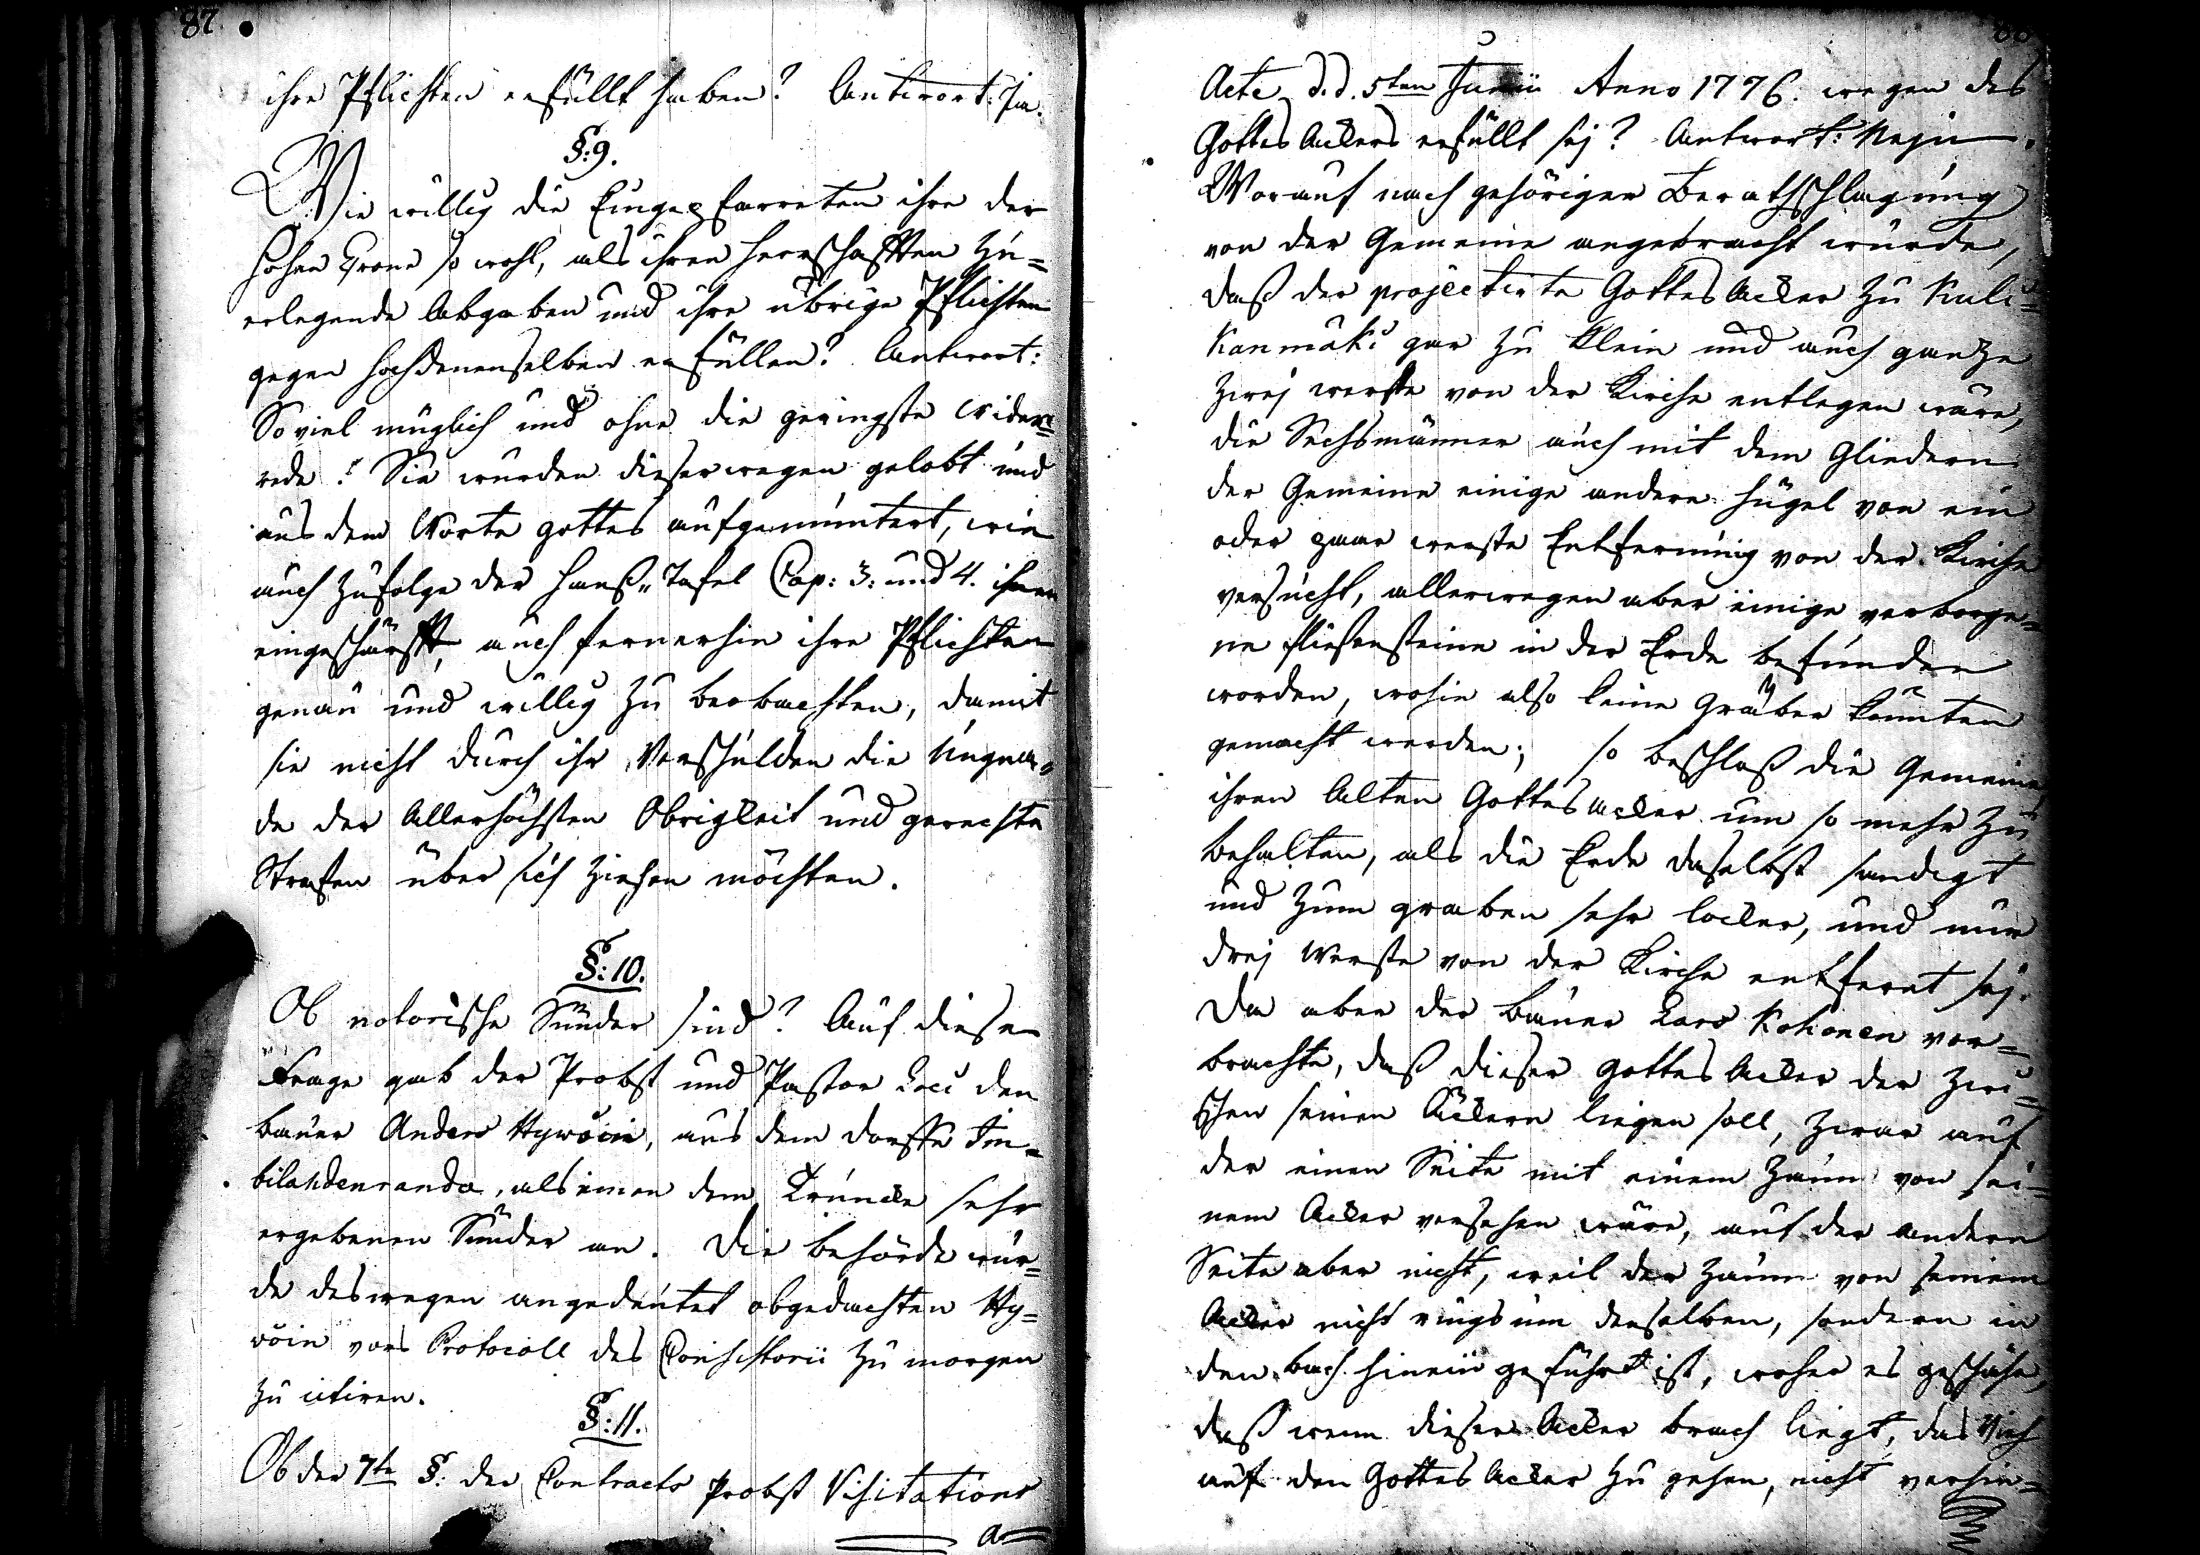 87.
ihre Pflichten erfüllt haben? Antwort: Ja.
§: 9.
Wie willig die Eingepfarreten ihre der
hohen Crone so wohl, als ihren Herrschafften zu=
erlegende Abgaben und ihre übrige Pflichten
gegen hochdenenselben erfüllen? Antwort:
So viel müglich und ohne die geringste wider=
rede! Sie wurden dieserwegen gelobt und
aus dem Worte gottes aufgemuntert, wie
auch zufolge der Hauß„Tafel Cap: 3: und 4. ihnen
eingeschärfft, auch fernerhin ihre Pflichten
genau und willig zu beobachten, damit
sie nicht durch ihr Verschulden die Ungna=
de der Allerhöchsten Obrigkeit und gerechte
Strafen über sich ziehen möchten.
§: 10.
Ob notorische Sünder sind? Auf diese
Frage gab der Probst und Pastor Loci den
bauer Anders Hywöin, aus dem dorffe Im=
bilahdenranda, als einen dem Truncke sehr
ergebenen Sünder an. Die behörde wur=
de deswegen angedeutet obgedachten Hy=
wöin vors Protocoll des Consistorii zu morgen
zu citiren.
§: 11.
Ob der 7te §: der Contracts Probst Visitations
a
Acte d. d. 5ten Junii Anno 1776. wegen des
Gottes Ackers erfüllt sej? Antwort: Nejn.
Worauf nach gehöriger Berathschlagung
von der Gemeine angebracht wurde,
daß der projectirte Gottes Acker zu Kuli=
kanmäki gar zu klein und auch ganze
zwej werste von der Kirche entlegen wäre,
die Sechsmänner auch mit dem Gliedern
der Gemeine einige andere hügel von ein
oder paar werste Entfernung von der Kirche
versucht, allerwegen aber einige verborge=
ne fliesensteine in der Erde befunden
worden, wohin also keine Gräber konnten
gemacht werden; so beschloß die Gemeine
ihren Alten Gottes acker um so mehr zu
behalten, als die Erde daselbst sandigt
und zum graben sehr locker, und nur
drej Werste von der Kirche entfernt sej.
Da aber der bauer Lars Kohonen vor=
brachte, daß dieser gottes Acker der zwi=
schen seinen Äckern liegen soll, zwar auf
der einen Seite mit einem Zaun von sei=
nem Acker versehen wäre, auf der andern
Seite aber nicht, weil der Zaun von seinem
Acker nicht rings um denselben, sondern in
den bach hinein geführt ist, woher es geschähe,
daß wenn dieser Acker brach liegt, das Vieh
auf den Gottes Acker zu gehen, nicht verhin=